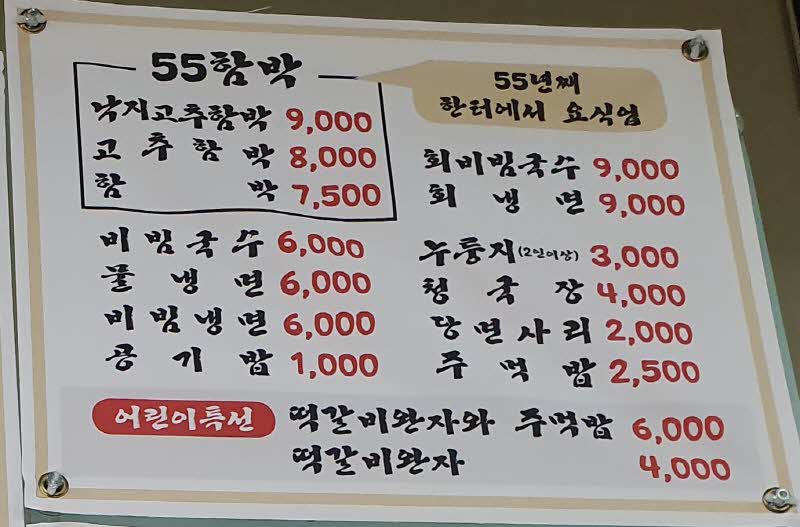 55함박
낙지고추함박 9,000
고추함박 8,000
함박 7,500
55년째
한터에서 요식업
회비빔국수 9,000
회냉면 9,000
비빔국수 6,000
물냉면 6,000
비빔냉면 6,000
공기밥 1,000
누룽지(2인이상) 3,000
청국장 4,000
당면사리 2,000
주먹밥 2,500
어린이특선 떡갈비완자와 주먹밥 6,000
떡갈비완자 4,000